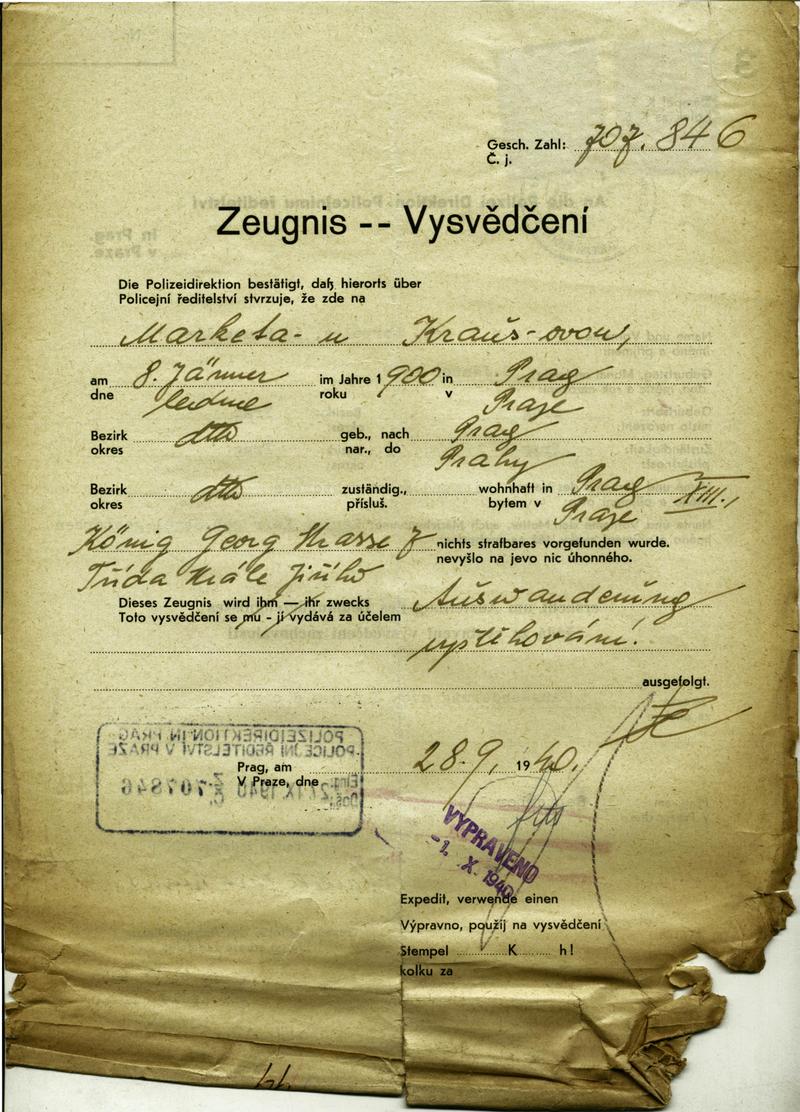 Gesch. Zahl: 707.846
Č. j.
Zeugnis -- Vysvědčení
Die Polizeidirektion bestätigt, daß hierorts über
Policejní ředitelství stvrzuje, že zde na
Marketa- u Krauś-ovou,
am 8. Jänner im Jahre 1900 in Prag
dne ledna roku v Praze
Bezirk dtto geb., nach Prag
okres nar., do Prahy
Bezirk dtto zuständig., wohnhaft in Prag XIII.,
okres přísluš. bytem v Praze
König Georg Strasse 7 nichts strafbares vorgefunden wurde.
nevyšlo na jevo nic úhonného.
Třída Krále Jiřího
Dieses Zeugnis wird ihm — ihr zwecks Auswanderung
Toto vysvědčení se mu - jí vydává za účelem
vystěhování.
ausgefolgt.
POLIZEIDIREKTION IN PRAG
POLICEJNÍ ŘEDITELSTVÍ V PRAZE
Prag, am 28.9. 1940.
V Praze, dne
Eing.: 27. IX. 1940 Z. 707846
Došl.: Č.
VYPRAVENO
-1. X. 1940
Expedit, verwende einen
Výpravno, použij na vysvědčení
Stempel K h!
kolku za